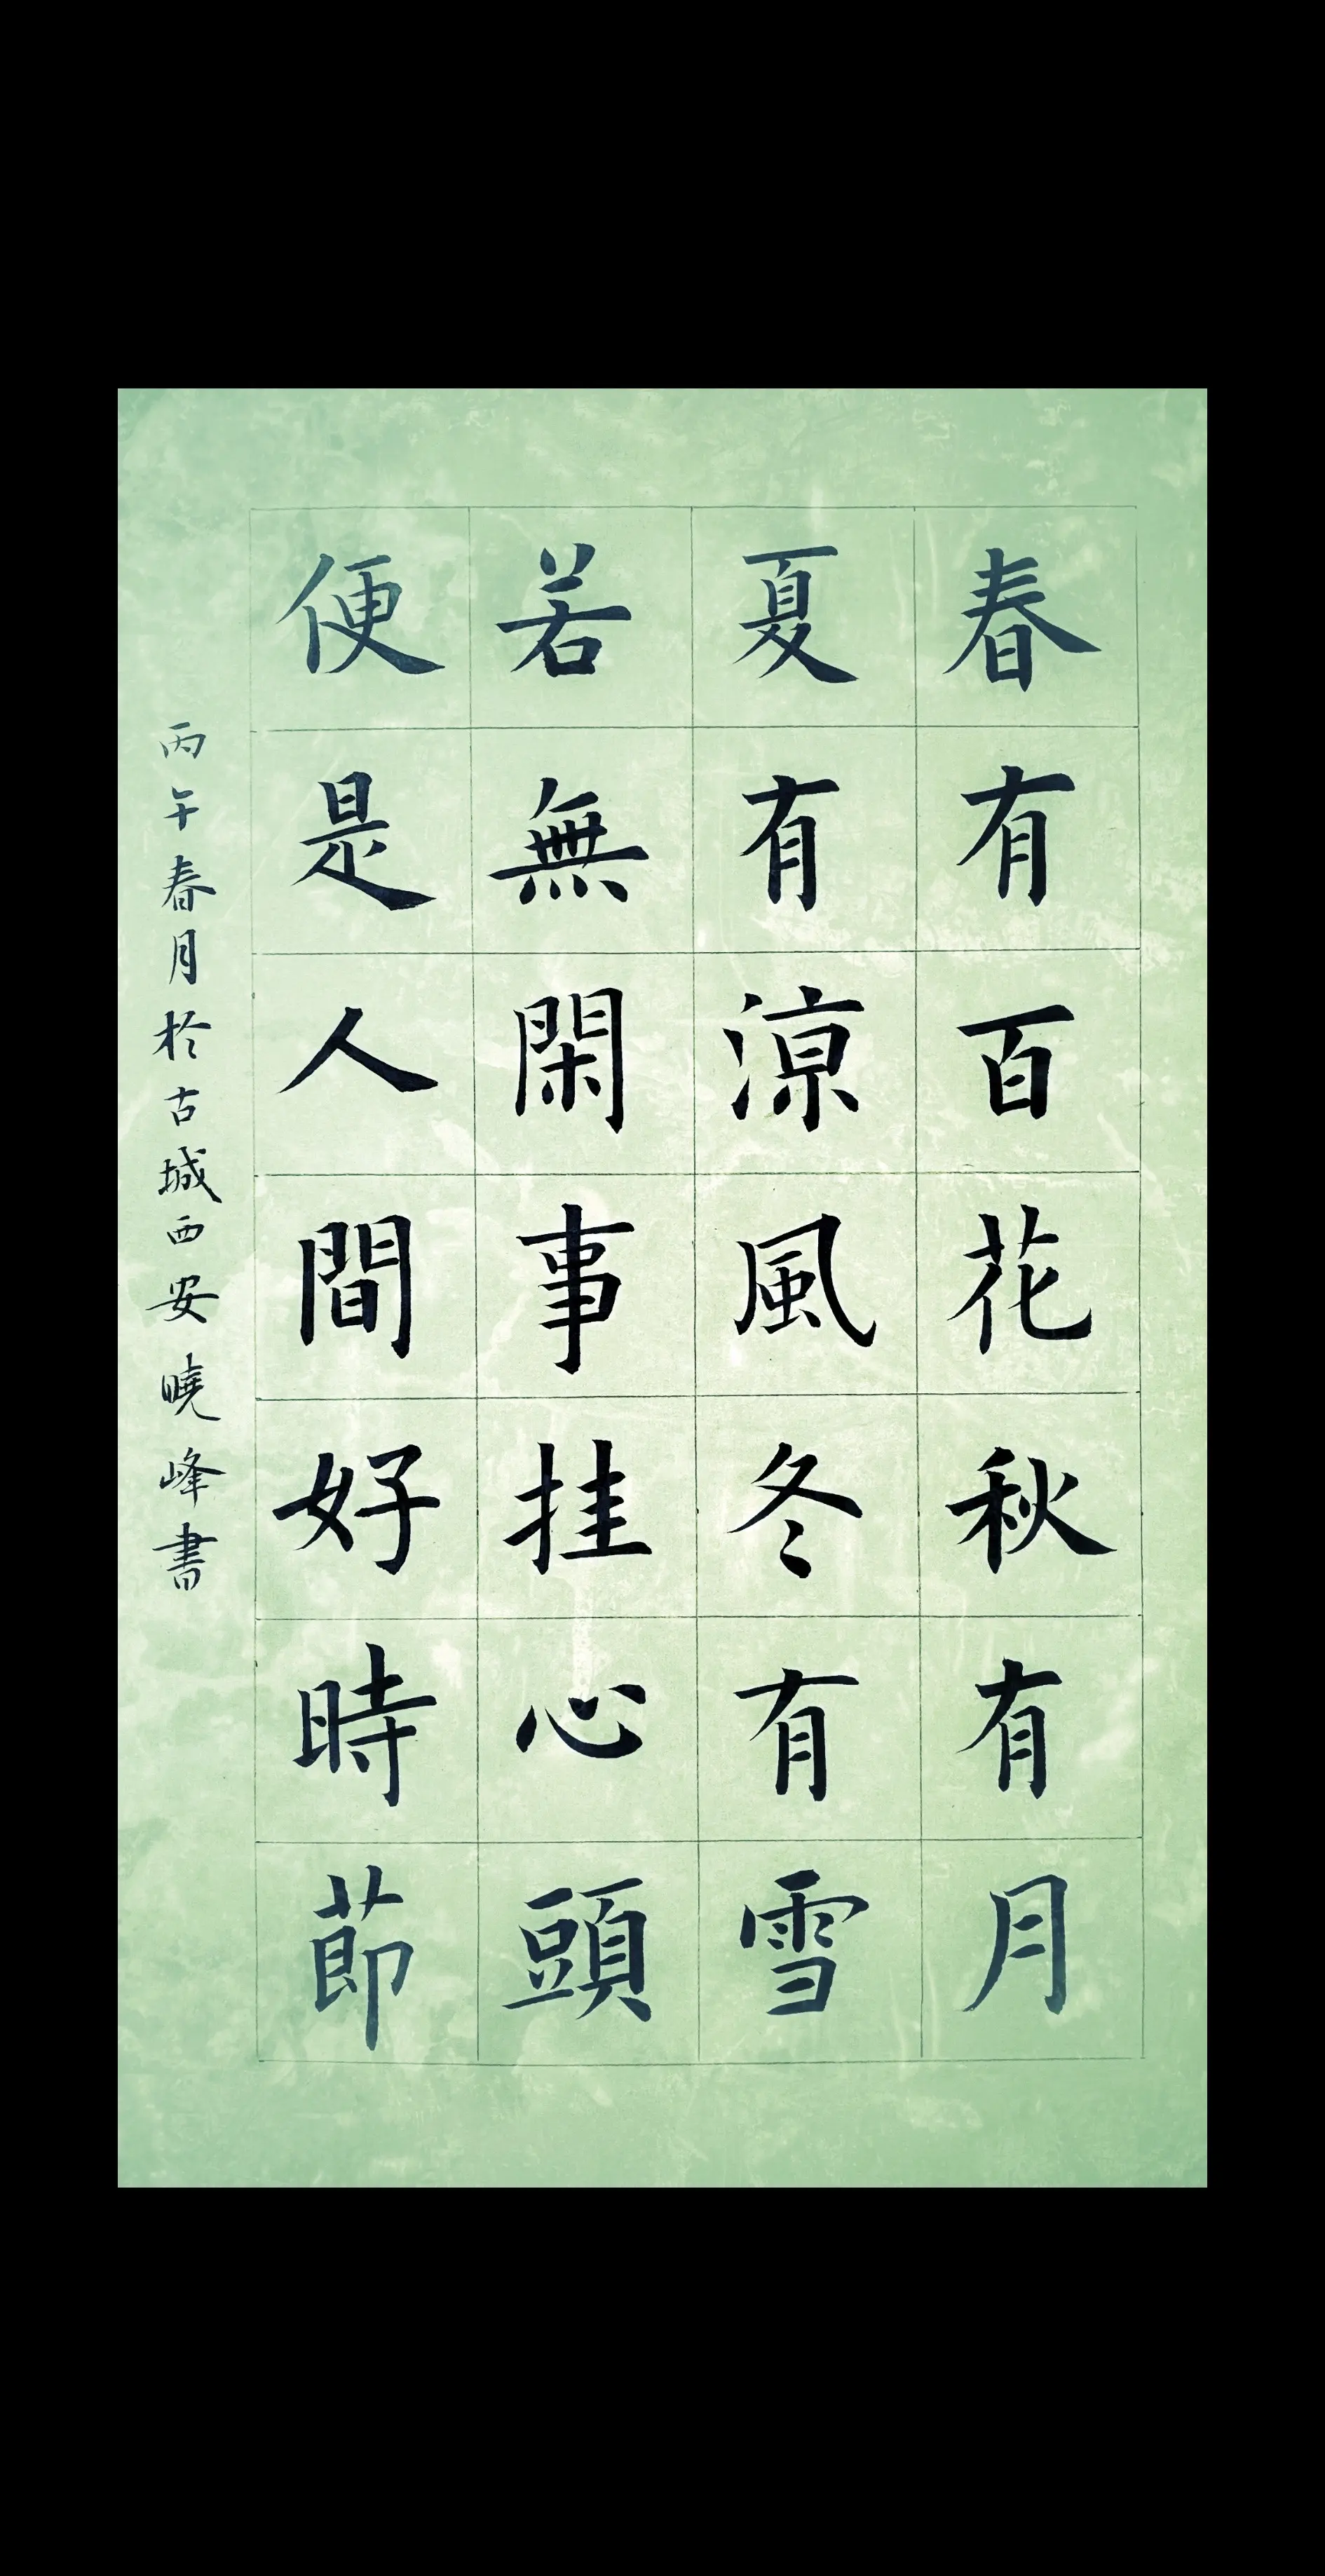 春有百花秋有月
夏有涼風冬有雪
若無閑事挂心頭
便是人間好時節
丙午春月於古城西安曉峰書